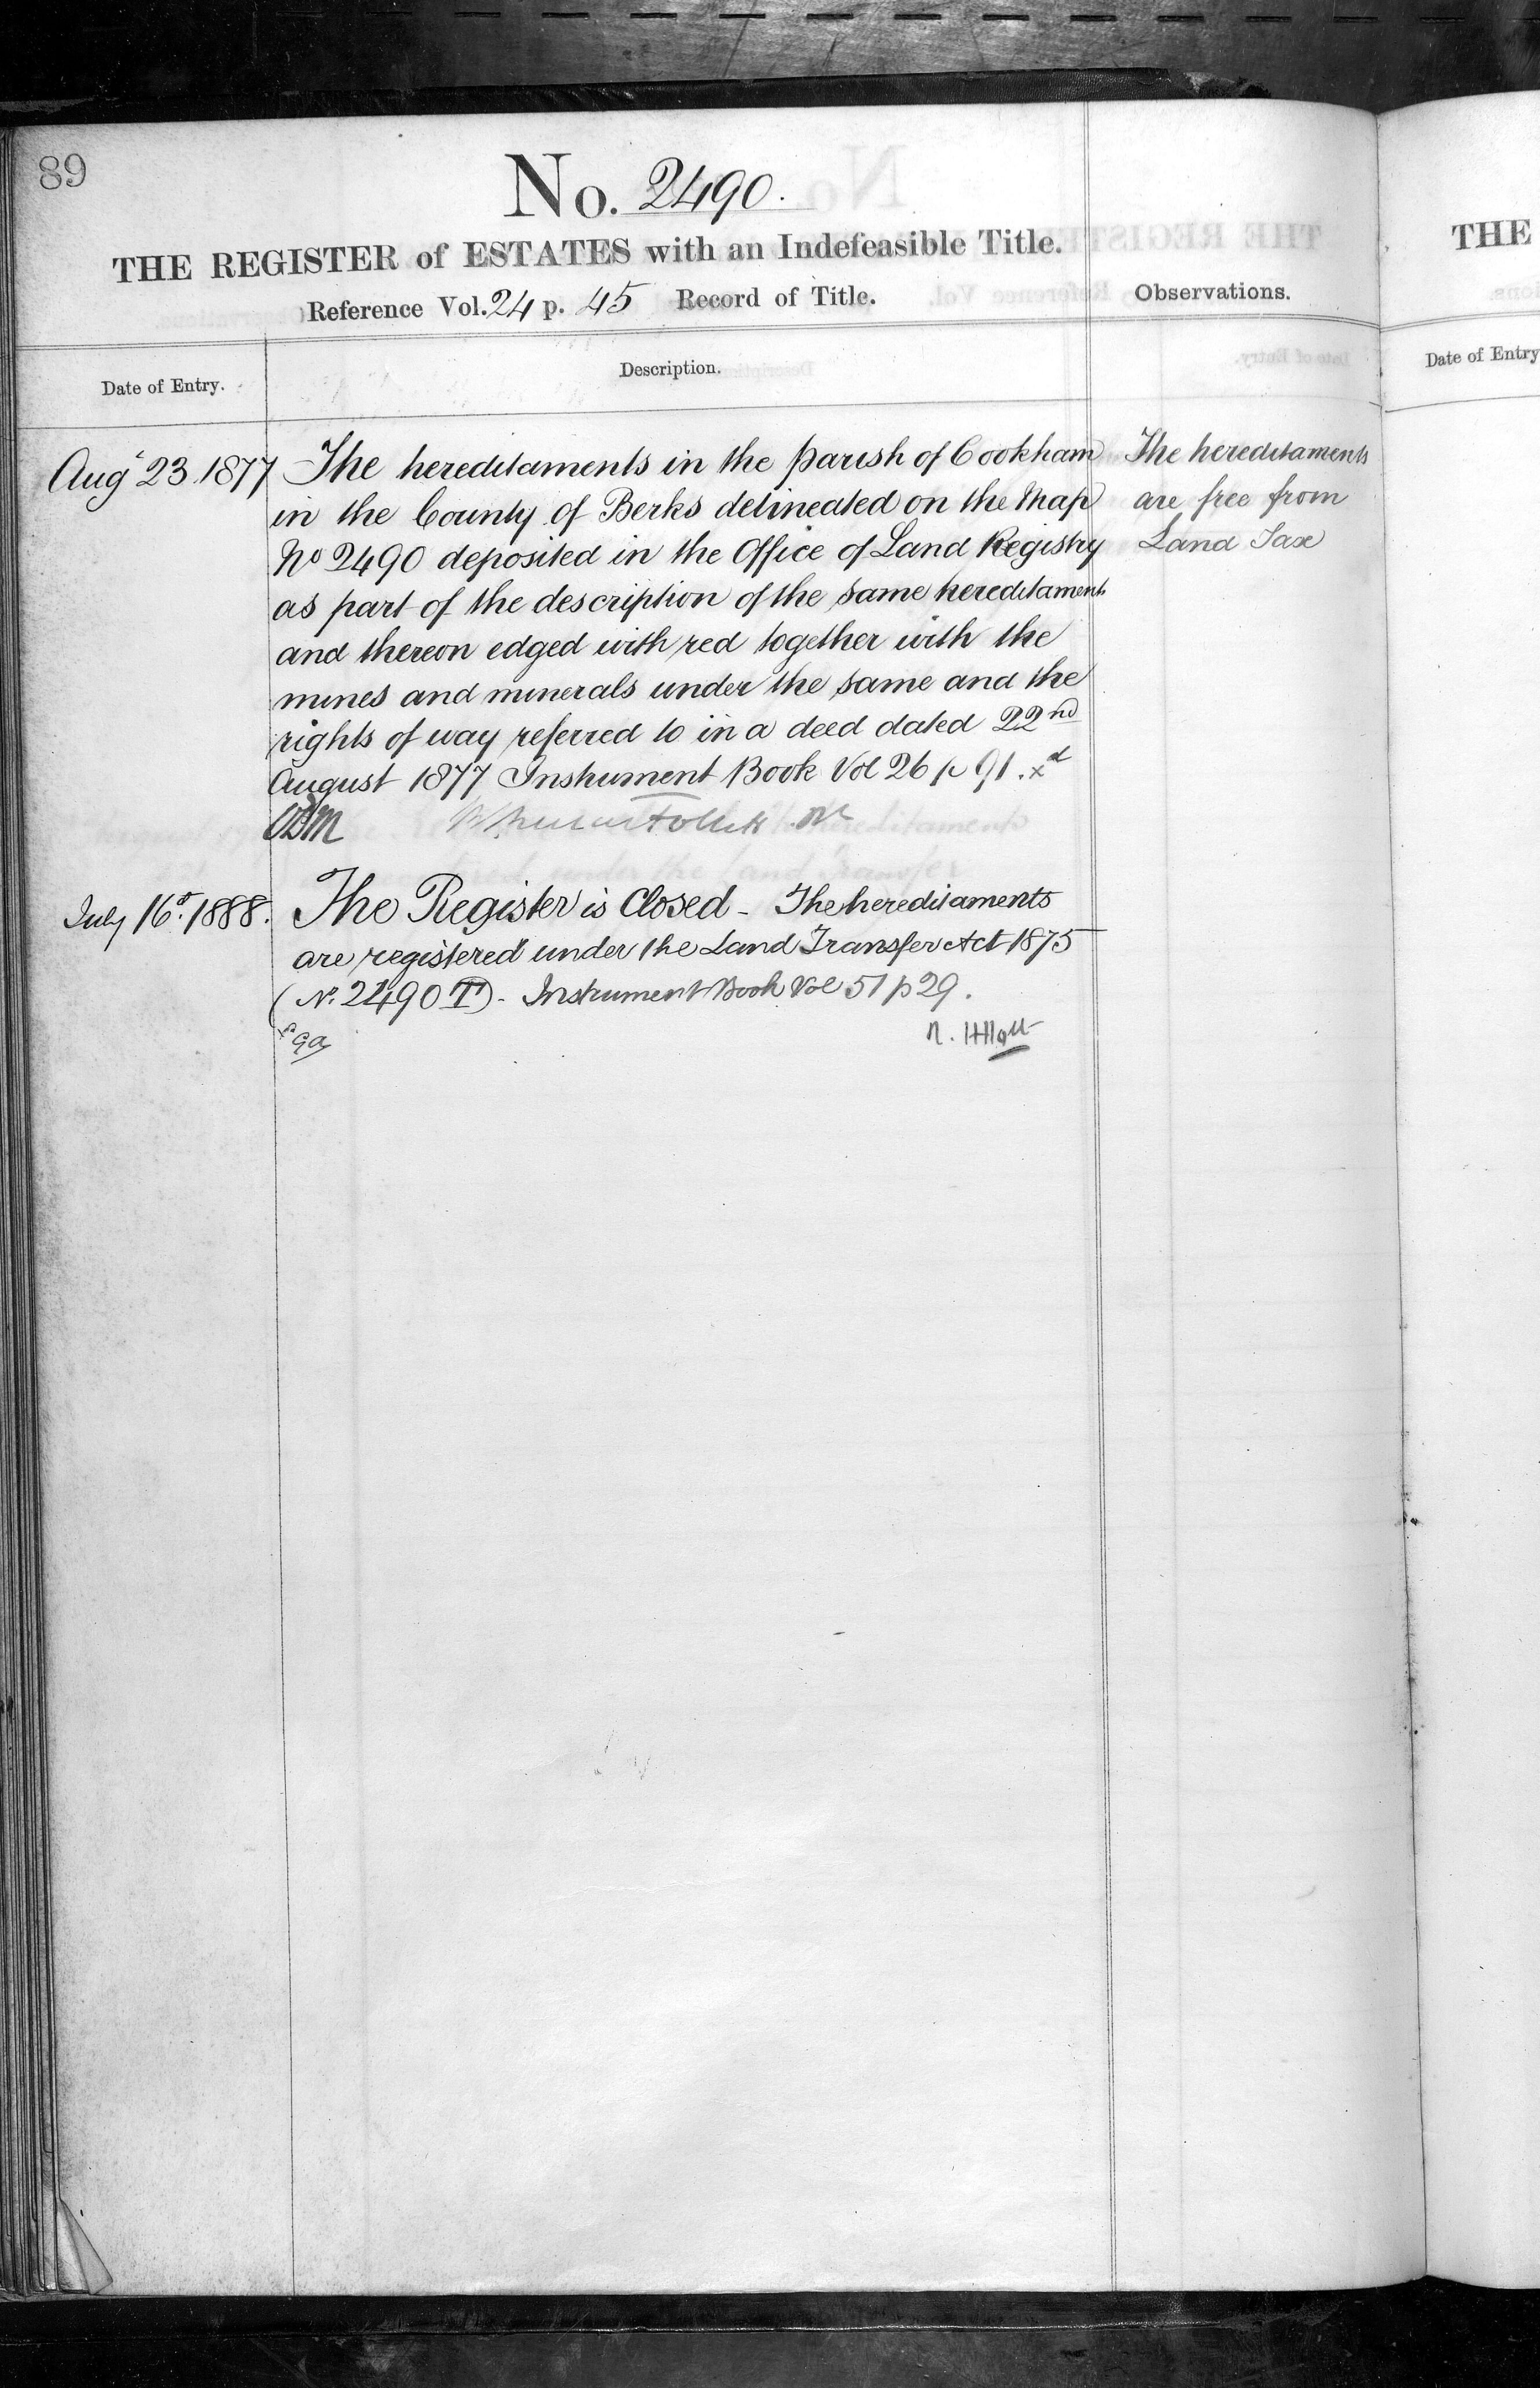 89
No. 2490.
THE REGISTER of ESTATES with an Indefeasible Title.
Reference Vol. 24 p. 45 Record of Title.
Observations.
Date of Entry.
Description.
Aug 23 1877
The hereditaments in the parish of Cookham
in the County of Berks delineated on the Map
No 2490 deposited in the Office of Land Registry
as part of the description of the same hereditaments
and thereon edged with red together with the
mines and minerals under the same and the
rights of way referred to in a deed dated 22nd
August 1877 Instrument Book Vol 26 p 91. xd
The hereditaments
are free from
Land Tax
July 16. 1888.
The Register is Closed - The hereditaments
are registered under the Land Transfer Act 1875
(No. 2490 T) - Instrument Book Vol 51 p 29.
THE
Date of Entry